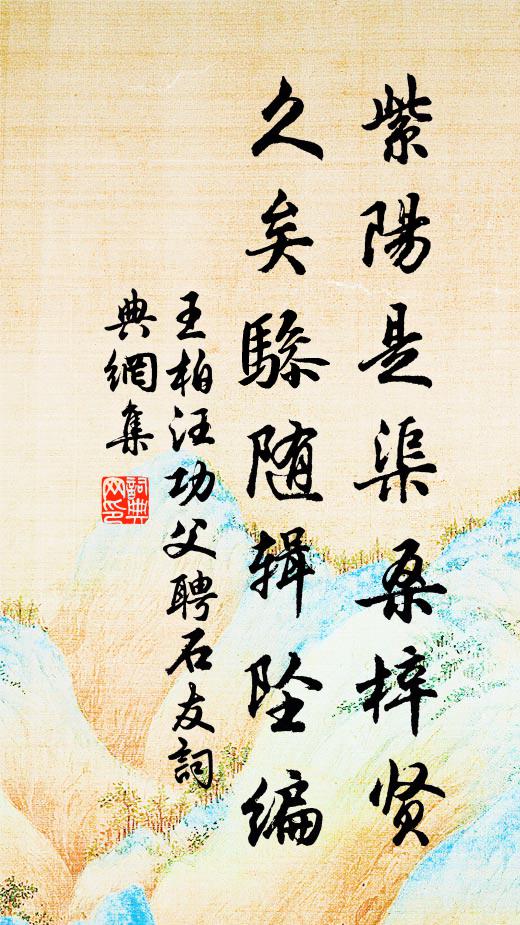 紫陽是渠桑梓贤
久矣驂随辑坠编
王柏汪功父聘石友詞
典網集
詞典網印